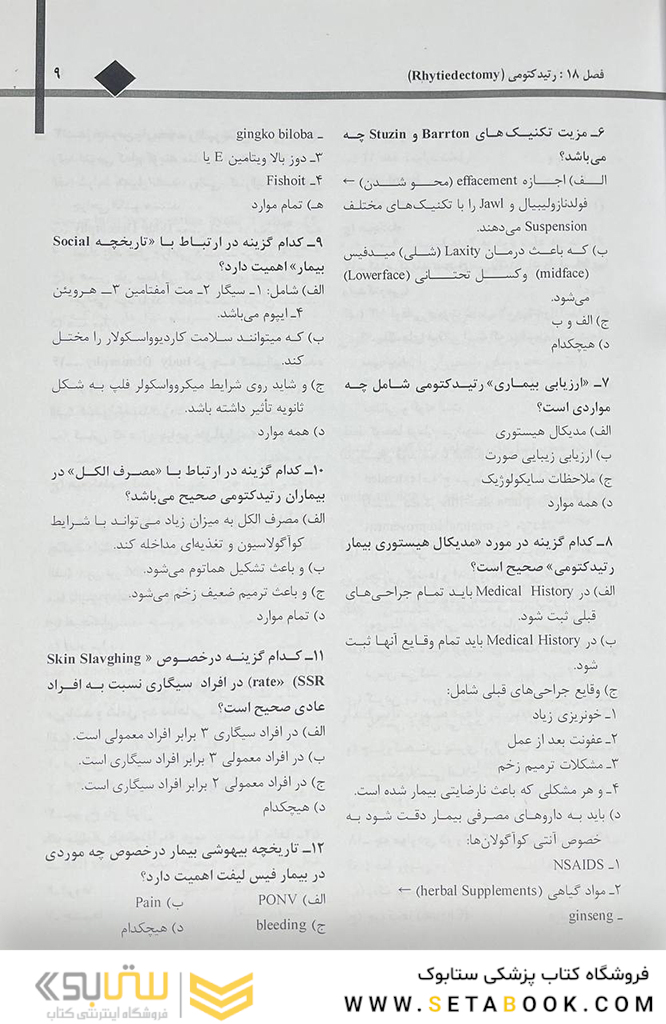 فصل ۱۸ : رتیدکتومی (Rhytiedectomy)
۹
۶ـ مزیت تکنیک‌های Barrton و Stuzin چه
می‌باشد؟
الف) اجازه effacement (محو شدن) ←
فولدنازولیبیال و Jawl را با تکنیک‌های مختلف
Suspension می‌دهند.
ب) که باعث درمان Laxity (شلی) میدفیس
(midface) وکسل تحتانی (Lowerface)
می‌شود.
ج) الف و ب
د) هیچکدام
۷ـ «ارزیابی بیماری» رتیدکتومی شامل چه
مواردی است؟
الف) مدیکال هیستوری
ب) ارزیابی زیبایی صورت
ج) ملاحظات سایکولوژیک
د) همه موارد
۸ـ کدام گزینه در مورد «مدیکال هیستوری بیمار
رتیدکتومی» صحیح است؟
الف) در Medical History باید تمام جراحی‌های
قبلی ثبت شود.
ب) در Medical History باید تمام وقایع آنها ثبت
شود.
ج) وقایع جراحی‌های قبلی شامل:
۱ـ خونریزی زیاد
۲ـ عفونت بعد از عمل
۳ـ مشکلات ترمیم زخم
۴ـ و هر مشکلی که باعث نارضایتی بیمار شده است.
د) باید به داروهای مصرفی بیمار دقت شود به
خصوص آنتی کوآگولان‌ها:
۱ـ NSAIDS
۲ـ مواد گیاهی (herbal Supplements) ←
ـ ginseng
ـ gingko biloba
۳ـ دوز بالا ویتامین E یا
۴ـ Fishoit
هـ) تمام موارد
۹ـ کدام گزینه در ارتباط با «تاریخچه Social
بیمار» اهمیت دارد؟
الف) شامل: ۱ـ سیگار ۲ـ مت آمفتامین ۳ـ هروئین
۴ـ ایپوم می‌باشد.
ب) که میتوانند سلامت کاردیوواسکولار را مختل
کند.
ج) و شاید روی شرایط میکروواسکولر فلپ به شکل
ثانویه تأثیر داشته باشد.
د) همه موارد
۱۰ـ کدام گزینه در ارتباط با «مصرف الکل» در
بیماران رتیدکتومی صحیح می‌باشد؟
الف) مصرف الکل به میزان زیاد می‌تواند با شرایط
کوآگولاسیون و تغذیه‌ای مداخله کند.
ب) و باعث تشکیل هماتوم می‌شود.
ج) و باعث ترمیم ضعیف زخم می‌شود.
د) تمام موارد
۱۱ـ کدام گزینه درخصوص « Skin Slavghing
SSR) «(rate) در افراد سیگاری نسبت به افراد
عادی صحیح است؟
الف) در افراد سیگاری ۳ برابر افراد معمولی است.
ب) در افراد معمولی ۳ برابر افراد سیگاری است.
ج) در افراد معمولی ۲ برابر افراد سیگاری است.
د) هیچکدام
۱۲ـ تاریخچه بیهوشی بیمار درخصوص چه موردی
در بیمار فیس لیفت اهمیت دارد؟
الف) PONV ب) Pain
ج) bleeding د) هیچکدام
فروشگاه کتاب پزشکی ستابوک
WWW.SETABOOK.COM
ستابوک
فروشگاه اینترنتی کتاب